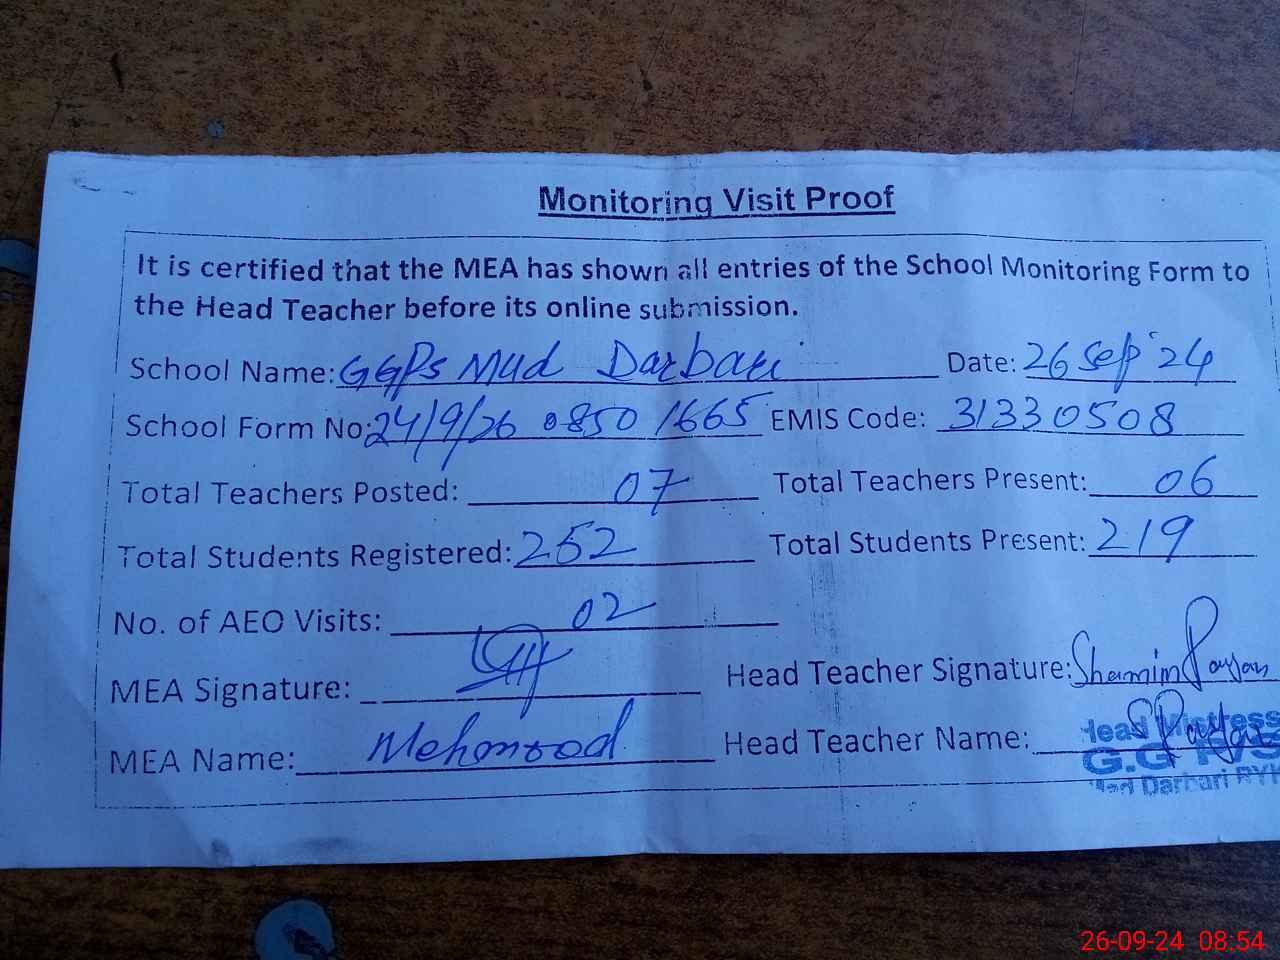 Monitoring Visit Proof
It is certified that the MEA has shown all entries of the School Monitoring Form to
the Head Teacher before its online submission.
School Name: GGPS Mud Darbari Date: 26 Sep '24
School Form No: 24/9/26 0850 1665 EMIS Code: 31330508
Total Teachers Posted: 07 Total Teachers Present: 06
Total Students Registered: 252 Total Students Present: 219
No. of AEO Visits: 02
MEA Signature: Head Teacher Signature: Shamim
MEA Name: Mehmood Head Teacher Name:
Head Mistress
G.G
Darbari RYK
26-09-24 08:54